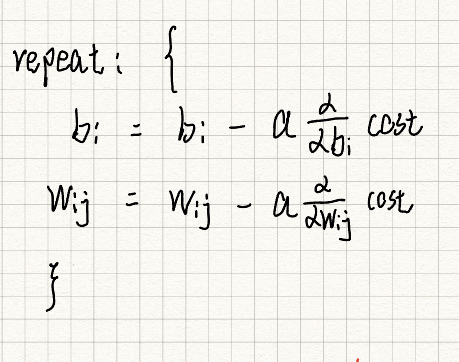 repeat: {
bi = bi - a ∂/∂bi cost
Wij = Wij - a ∂/∂Wij cost
}